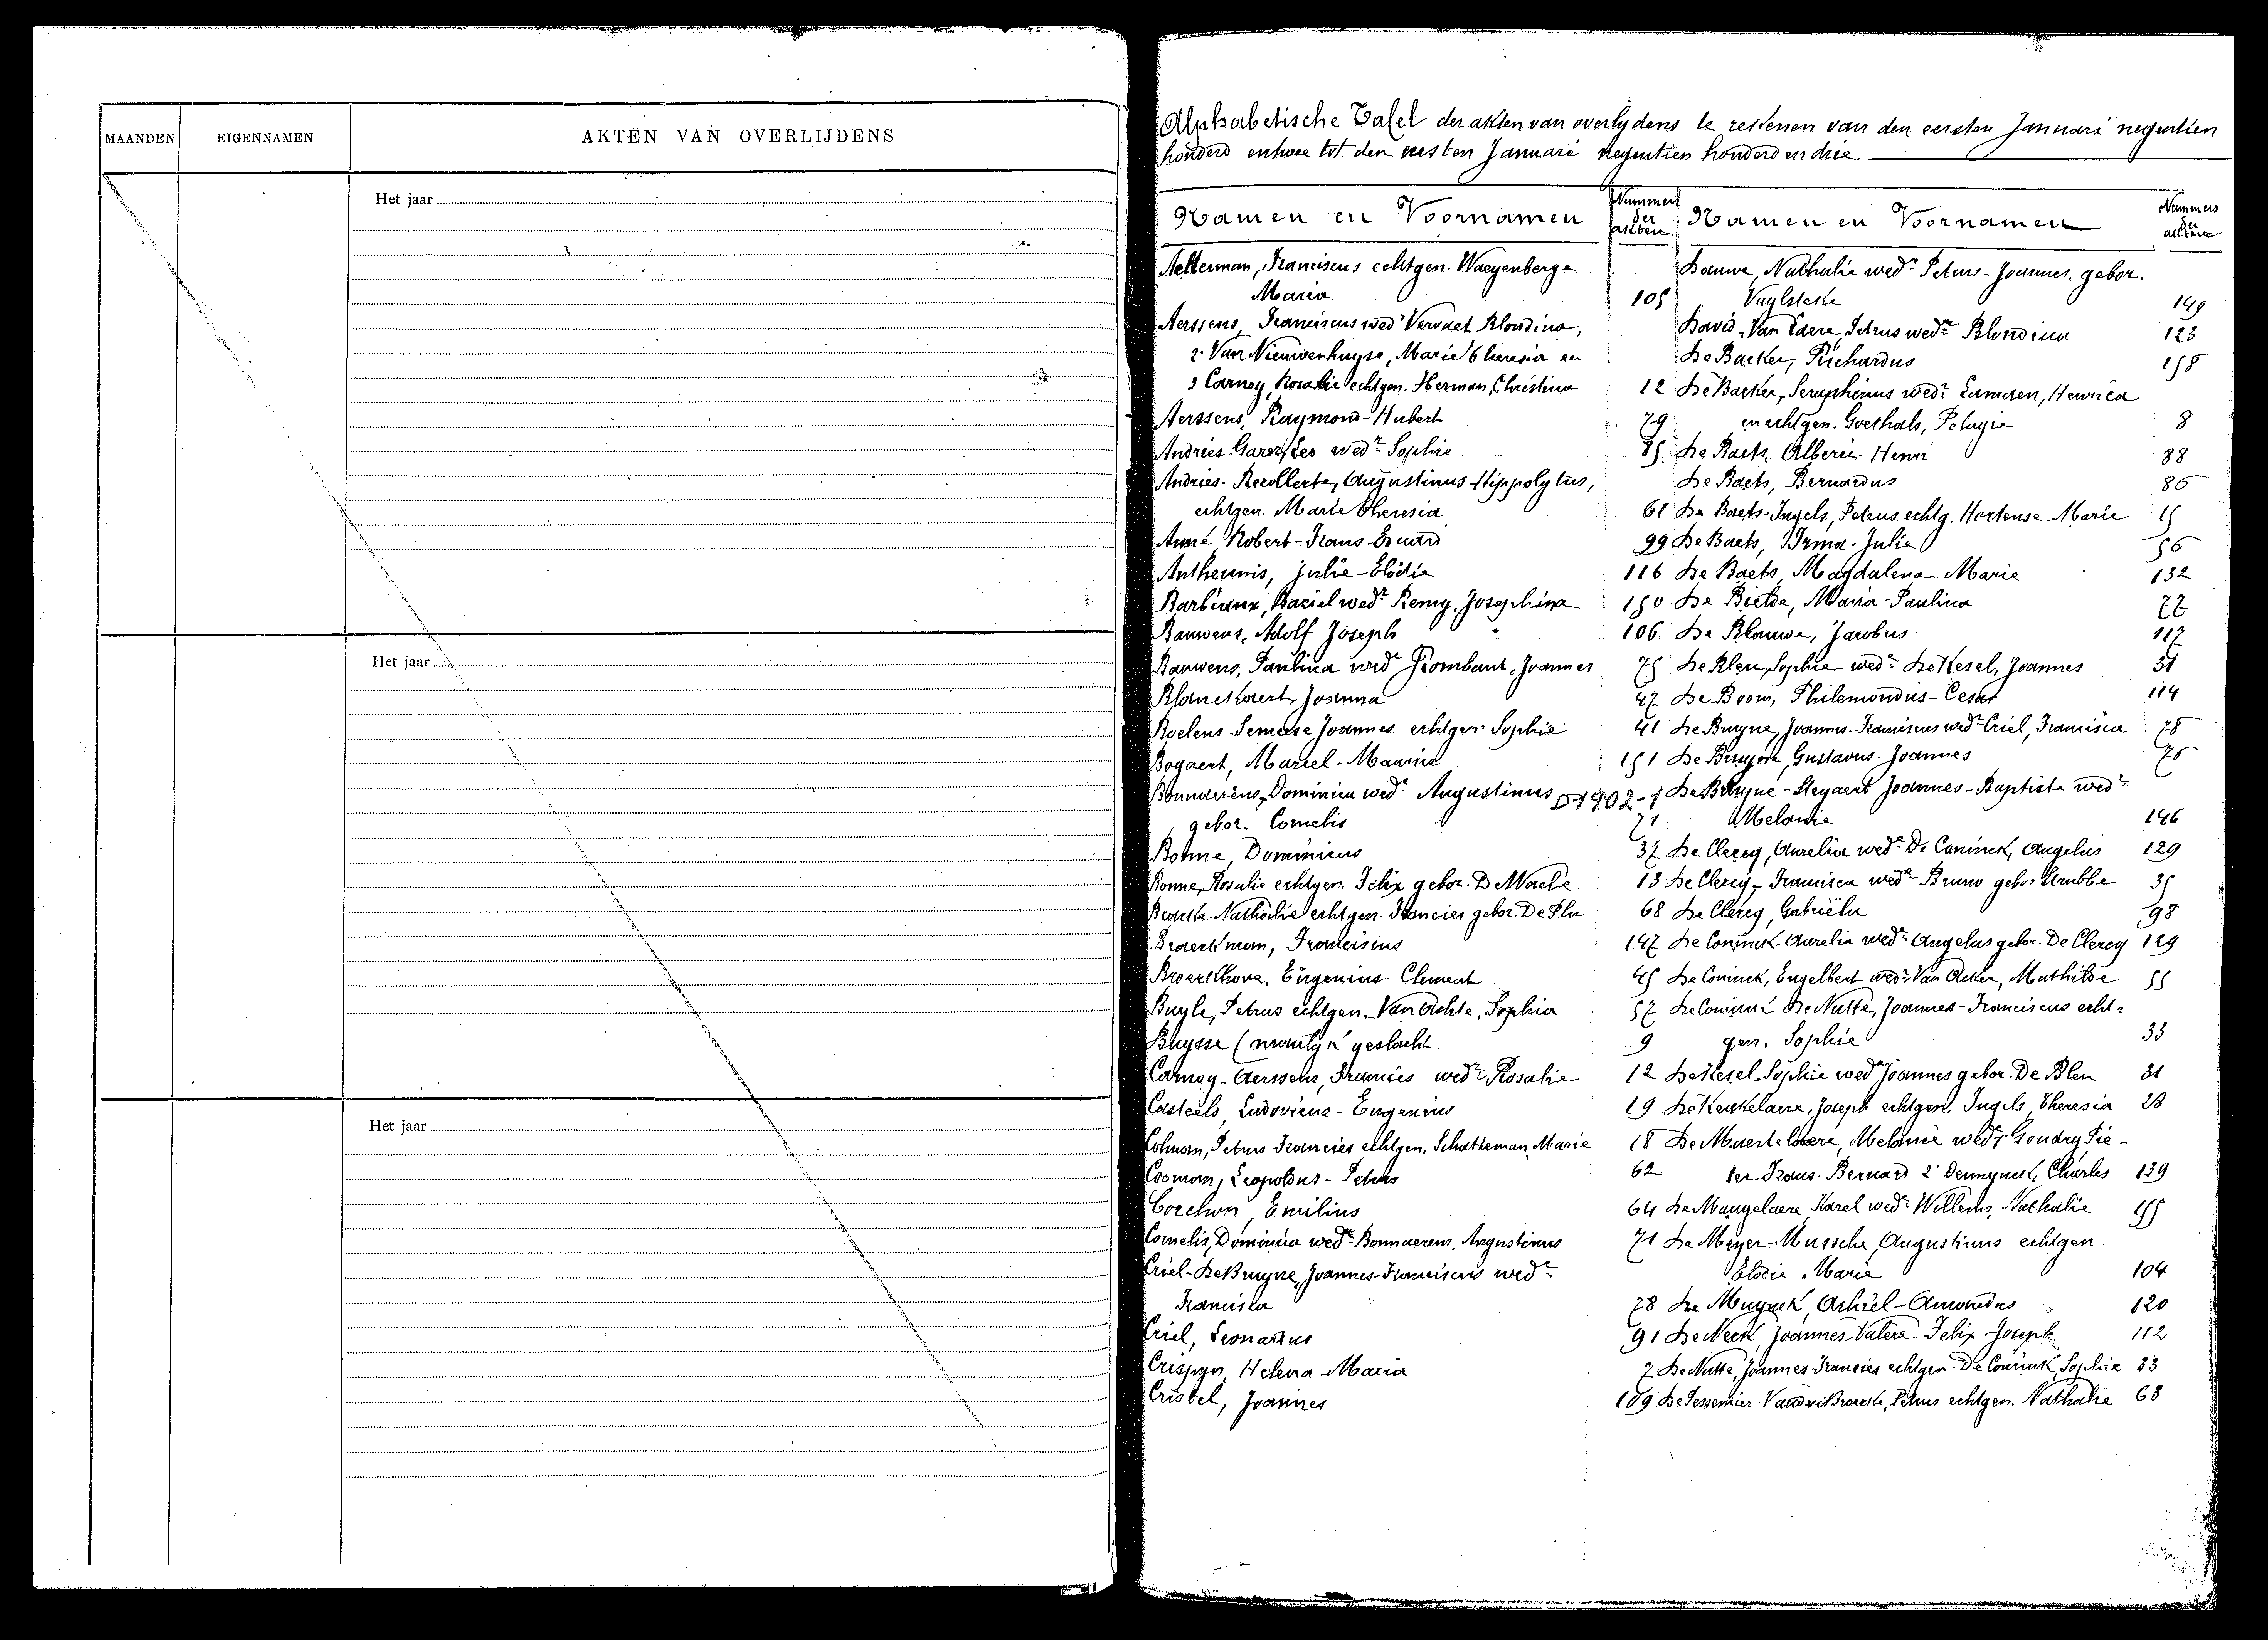 MAANDEN
EIGENNAMEN
AKTEN VAN OVERLIJDENS
Het jaar
Het jaar
Het jaar
Alphabetische Tafel der akten van overlydens te rekenen van den eersten Januari negentien
honderd en twee tot den eersten Januari negentien honderd en drie
Namen en Voornamen
Nummers der akten
Namen en Voornamen
Nummers der akten
Aelterman, Franciscus echtgen. Waeyenberge
Maria 105
Aerssens, Franciscus wedr Vervaet Blondina,
2. Van Nieuwenhuyse, Marie Theresia en
3 Carnoy, Rosalie echtgen. Herman, Christina 12
Aerssens, Raymond-Hubert 79
Andries Leo wedr Sophie 85
Andries- Augustinus Hippolytus,
echtgen. Marie Theresia 61
Anné Robert-Frans-Eduard 99
Antheunis, Julie-Elodie 116
Barbieux, Baziel wedr Remy, Josephina 150
Bauwens, Adolf Joseph 106
Bauwens, Paulina wede Rombaut, Joannes 75
Blanckaert, Joanna 47
Roelens Joannes echtgen. Sophie 41
Bogaert, Marcel-Maurice 151
Bonnaerens, Dominica wede Augustinus
D1902-1
gebor. Cornelis 71
Bonne, Dominicus 37
Bonne, Rosalie echtgen. Felix gebor. De Waele 13
Nathalie echtgen. Francies gebor. De 68
Braeckman, Franciscus 147
Broeckhove, Eugenius Clement 45
Buyle, Petrus echtgen. Van Achte, Sophia 57
Buysse (vrouwlijk geslacht 9
Carnoy-Aerssens, Francies wedr Rosalie 12
Casteels, Ludovicus-Eugenius 19
Colman, Petrus Francies echtgen. Schatteman, Marie 18
Cooman, Leopoldus-Petrus 62
Corchon, Emilius 64
Cornelis, Dominica wede Bonnaerens, Augustinus 71
Criel-De Bruyne, Joannes-Franciscus wedr
Francisca 78
Criel, Leonardus 91
Crispyn, Helena Maria 7
Cristel, Joannes 109
Dauwe, Nathalie wede Petrus-Joannes, gebor.
Vuylsteke 149
David-Van Daere, Petrus wedr Blondina 123
De Backer, Richardus 158
De Backer, Seraphinus wedr Henrica
en echtgen. Goethals, Pelagie 8
De Baets, Alberic-Henri 88
De Baets, Bernardus 86
De Baets-Ingels, Petrus echtg. Hortense-Marie 15
De Baets, Irma-Julia 56
De Baets, Magdalena-Marie 132
De Bietse, Maria-Paulina 77
De Blauwe, Jacobus 117
De Blen, Sophie wede De Kesel, Joannes 31
De Boom, Philemondus-Cesar 114
De Bruyne, Joannes-Franciscus wedr Criel, Francisca 78
De Bruyne, Gustavus-Joannes 76
De Bruyne-Steyaert Joannes-Baptiste wedr
Melanie 146
De Clercq, Aurelia wede De Coninck, Angelus 129
De Clercq-Francisca wede Bruno gebor Strubbe 35
De Clercq, Gabriëla 98
De Coninck-Aurelia wede Angelus gebor. De Clercq 129
De Coninck, Engelbert wedr Van Acker, Mathilde 55
De Coninck De Nutte, Joannes-Franciscus echt-
gen. Sophie 33
De Kesel-Sophie wede Joannes gebor. De Blen 31
De Keukelaere, Joseph echtgen. Ingels, Theresia 28
De Maertelaere, Melanie wede Goudry Pie-
ter-Frans-Bernard 2° Dennynck, Charles 139
De Mangelaere Karel wedr Willems, Nathalie
De Meyer-Mussche, Augustinus echtgen
Elodie-Marie 104
De Muynck, Achiel-Amondus 120
De Neck, Joannes-Valere-Felix-Joseph 112
De Nutte, Joannes Francies echtgen. De Coninck, Sophie 33
De Pessemier Petrus echtgen. Nathalie 63